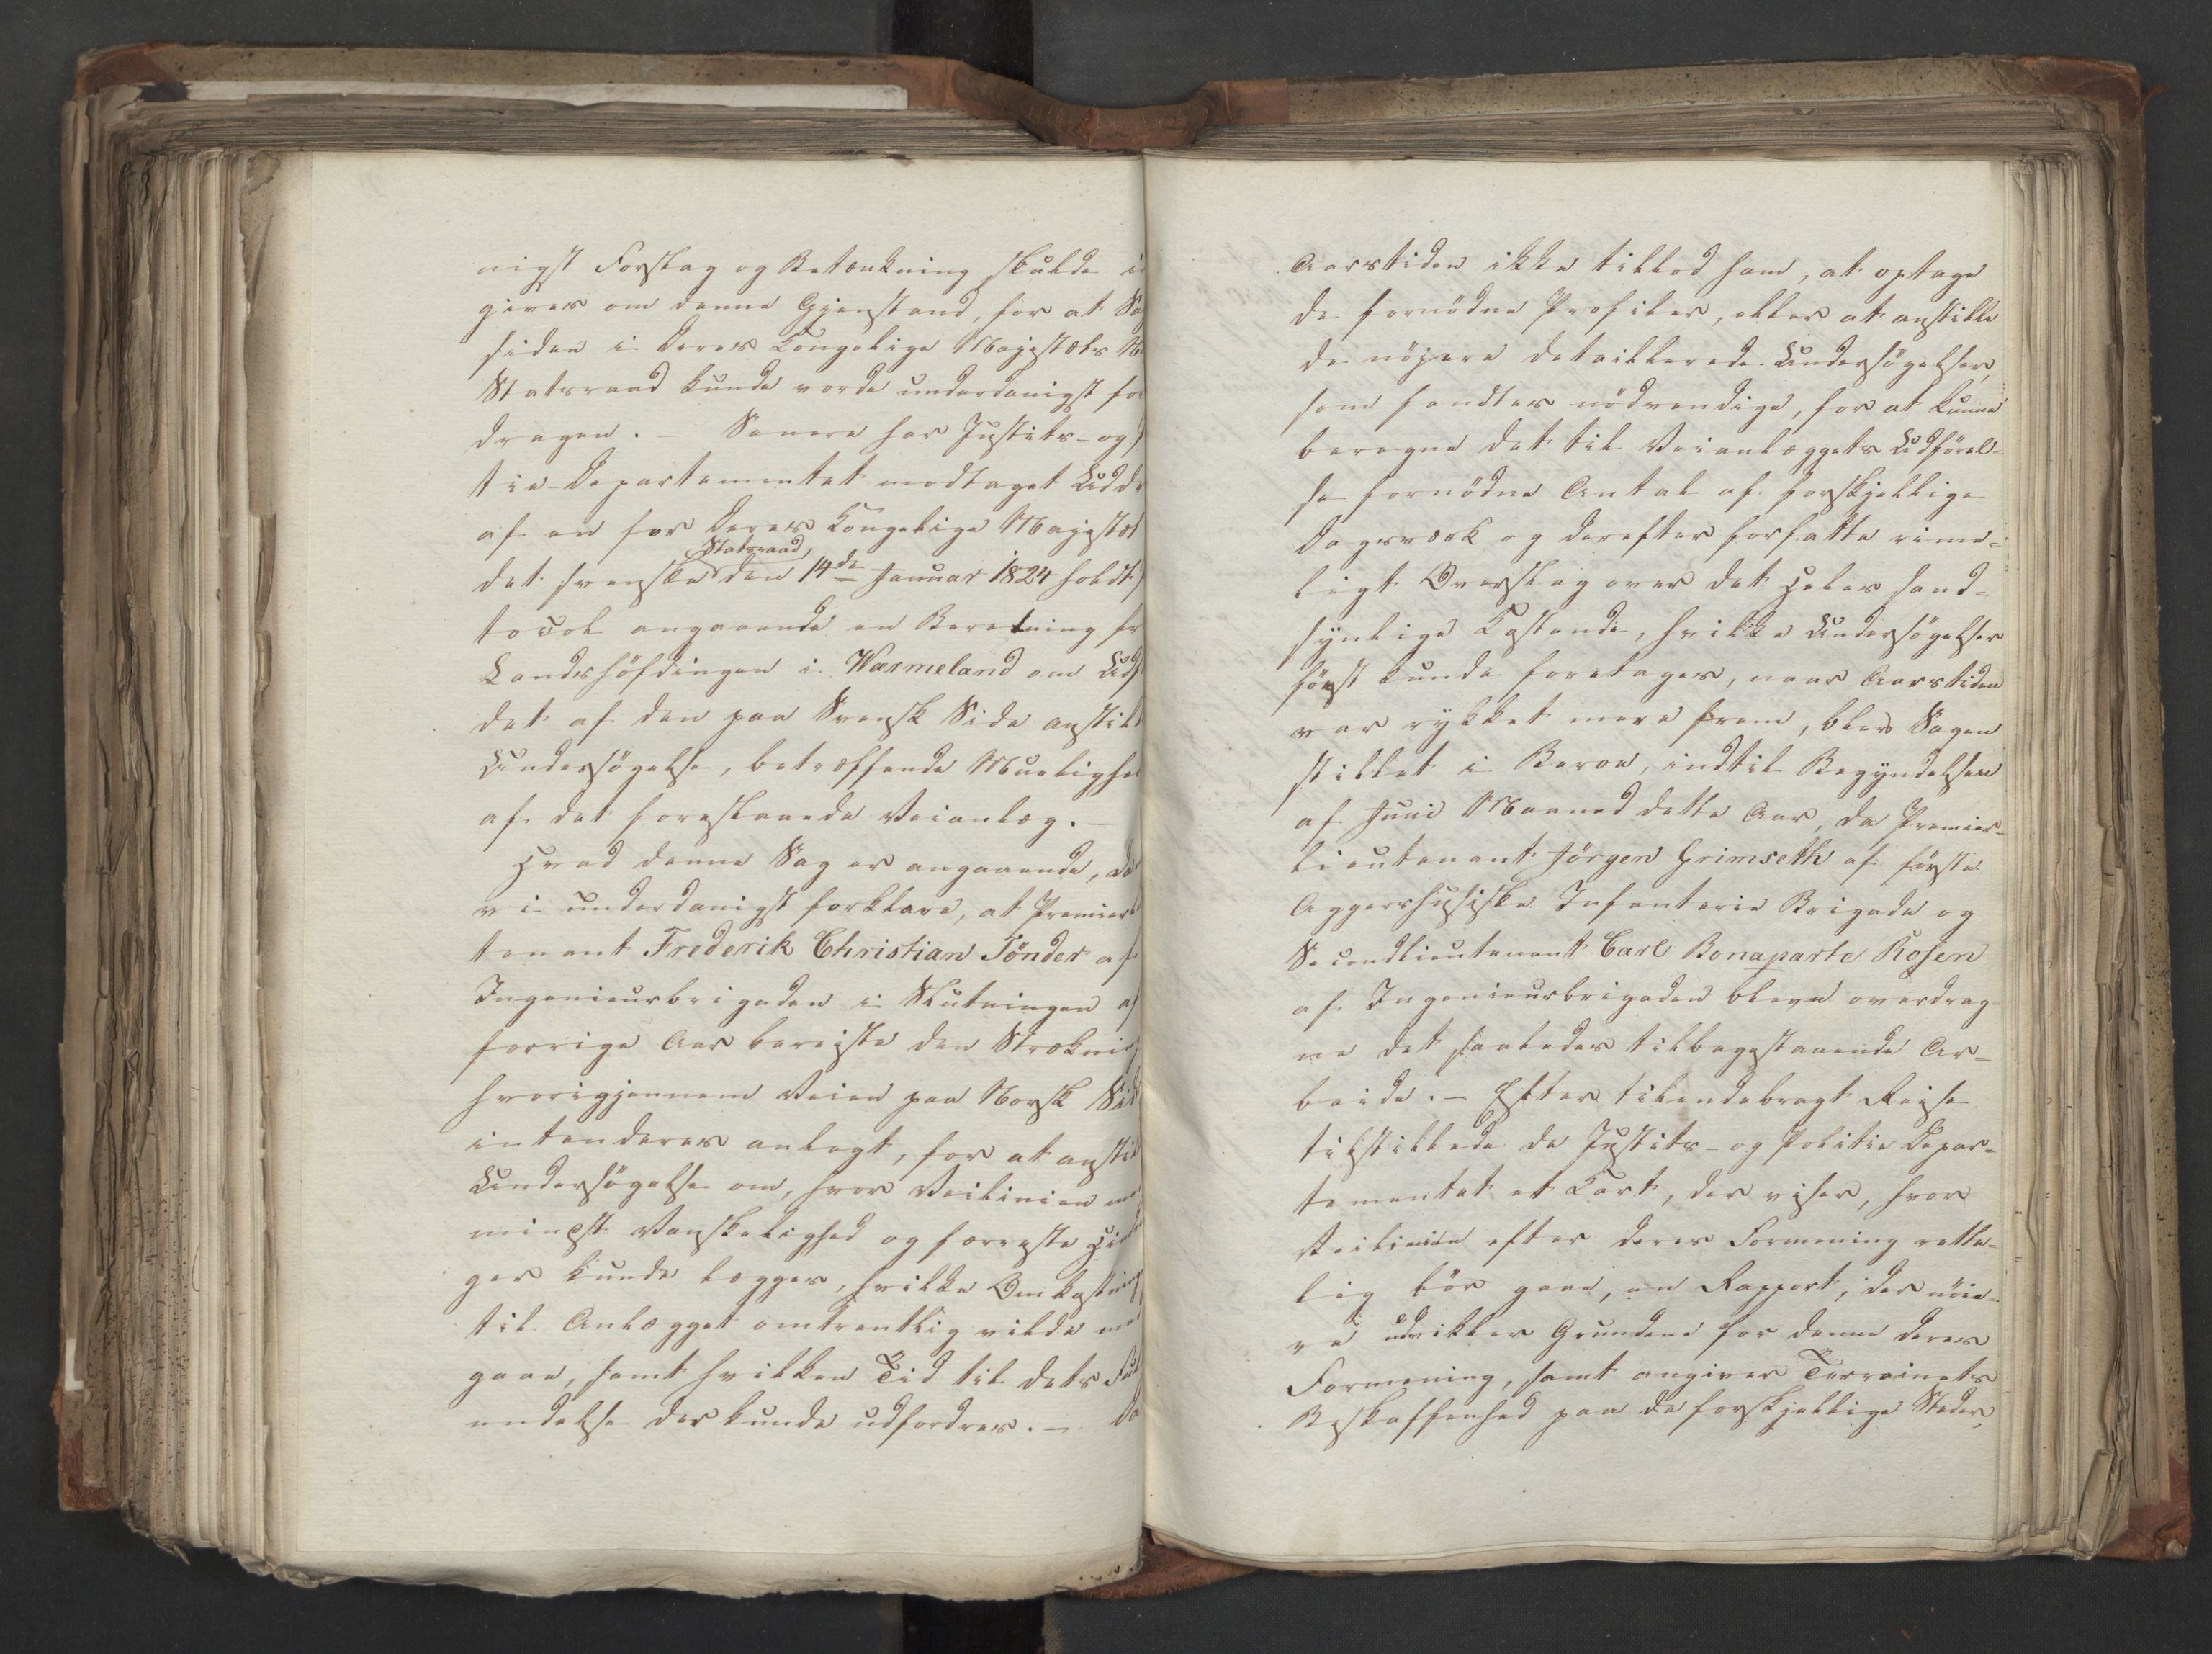 nigst Forslag og Betænkning skulde i
gives om denne Gjenstand, for at Sa
siden i Deres Kongelige Majestæts N
Statsraad kunde vorde underdanigst for
dragen. – Senere har Justits- og
tie-Departementet modtaget Uddr
af en for Deres Kongelige Majestæt
Statsraad
det svenske den 14de Januar 1824 holdt
tocol angaaende en Beretning fr
Landshöfdingen i Wærmeland om Udf
det af den paa Svensk Side anstil
Undersögelse, betræffende Mueligh
af det foreslaaede Veianlæg. –
Hvad denne Sag er angaaende,
vi underdanigst forklare, at Premier
tenant Frederik Christian Tönder af
Ingenieurbrigaden i Slutningen af
forrige Aar bereiste den Stræknin
hvorigjennem Veien paa Norsk Sid
intenderes anlagt, for at anstil
Undersögelse om, hvor Veilinien me
mindst Vanskelighed og færreste Hin
ger kunde lægges, hvilke Omkostning
til Anlægget omtrentlig vilde me
gaae, samt hvilken Tid til dets Ful
endelse der kunde udfordres. – Da
Aarstiden ikke tillod ham, at optage
de fornödne Profiler, eller at anstille
de nöjere detaillerede Undersögelser,
som fandtes nödvendige, for at kunne
beregne det til Veianlæggets Udförel-
se fornödne Antal af forskjellige
Dagsværk og derefter forfatte rime-
ligt Overslag over det Heles sand-
synlige Kostende, hvilke Undersögelser
först kunde foretages, naar Aarstiden
var rykket mere frem, blev Sagen
stillet i Beroe, indtil Begyndelsen
af Juni Maaned dette Aar, da Premier-
lieutenant Jörgen Grimseth af förste
Aggershusiske Infanterie Brigade og
Secondlieutenant Carl Bonaparte Rosen
af Ingenieurbrigaden bleve overdrag-
ne det saaledes tilbagestaaende Ar-
beide. – Efter tilendebragt Reise
tilstillede de Justits- og Politie Depar-
tementet et Kart, der viser, hvor
Veilinien efter deres Formening rette-
lig bör gaae, en Rapport, der nöie-
re udvikler Grundene for denne deres
Formening, samt angiver Terrainets
Beskaffenhed paa de forskjellige Steder,